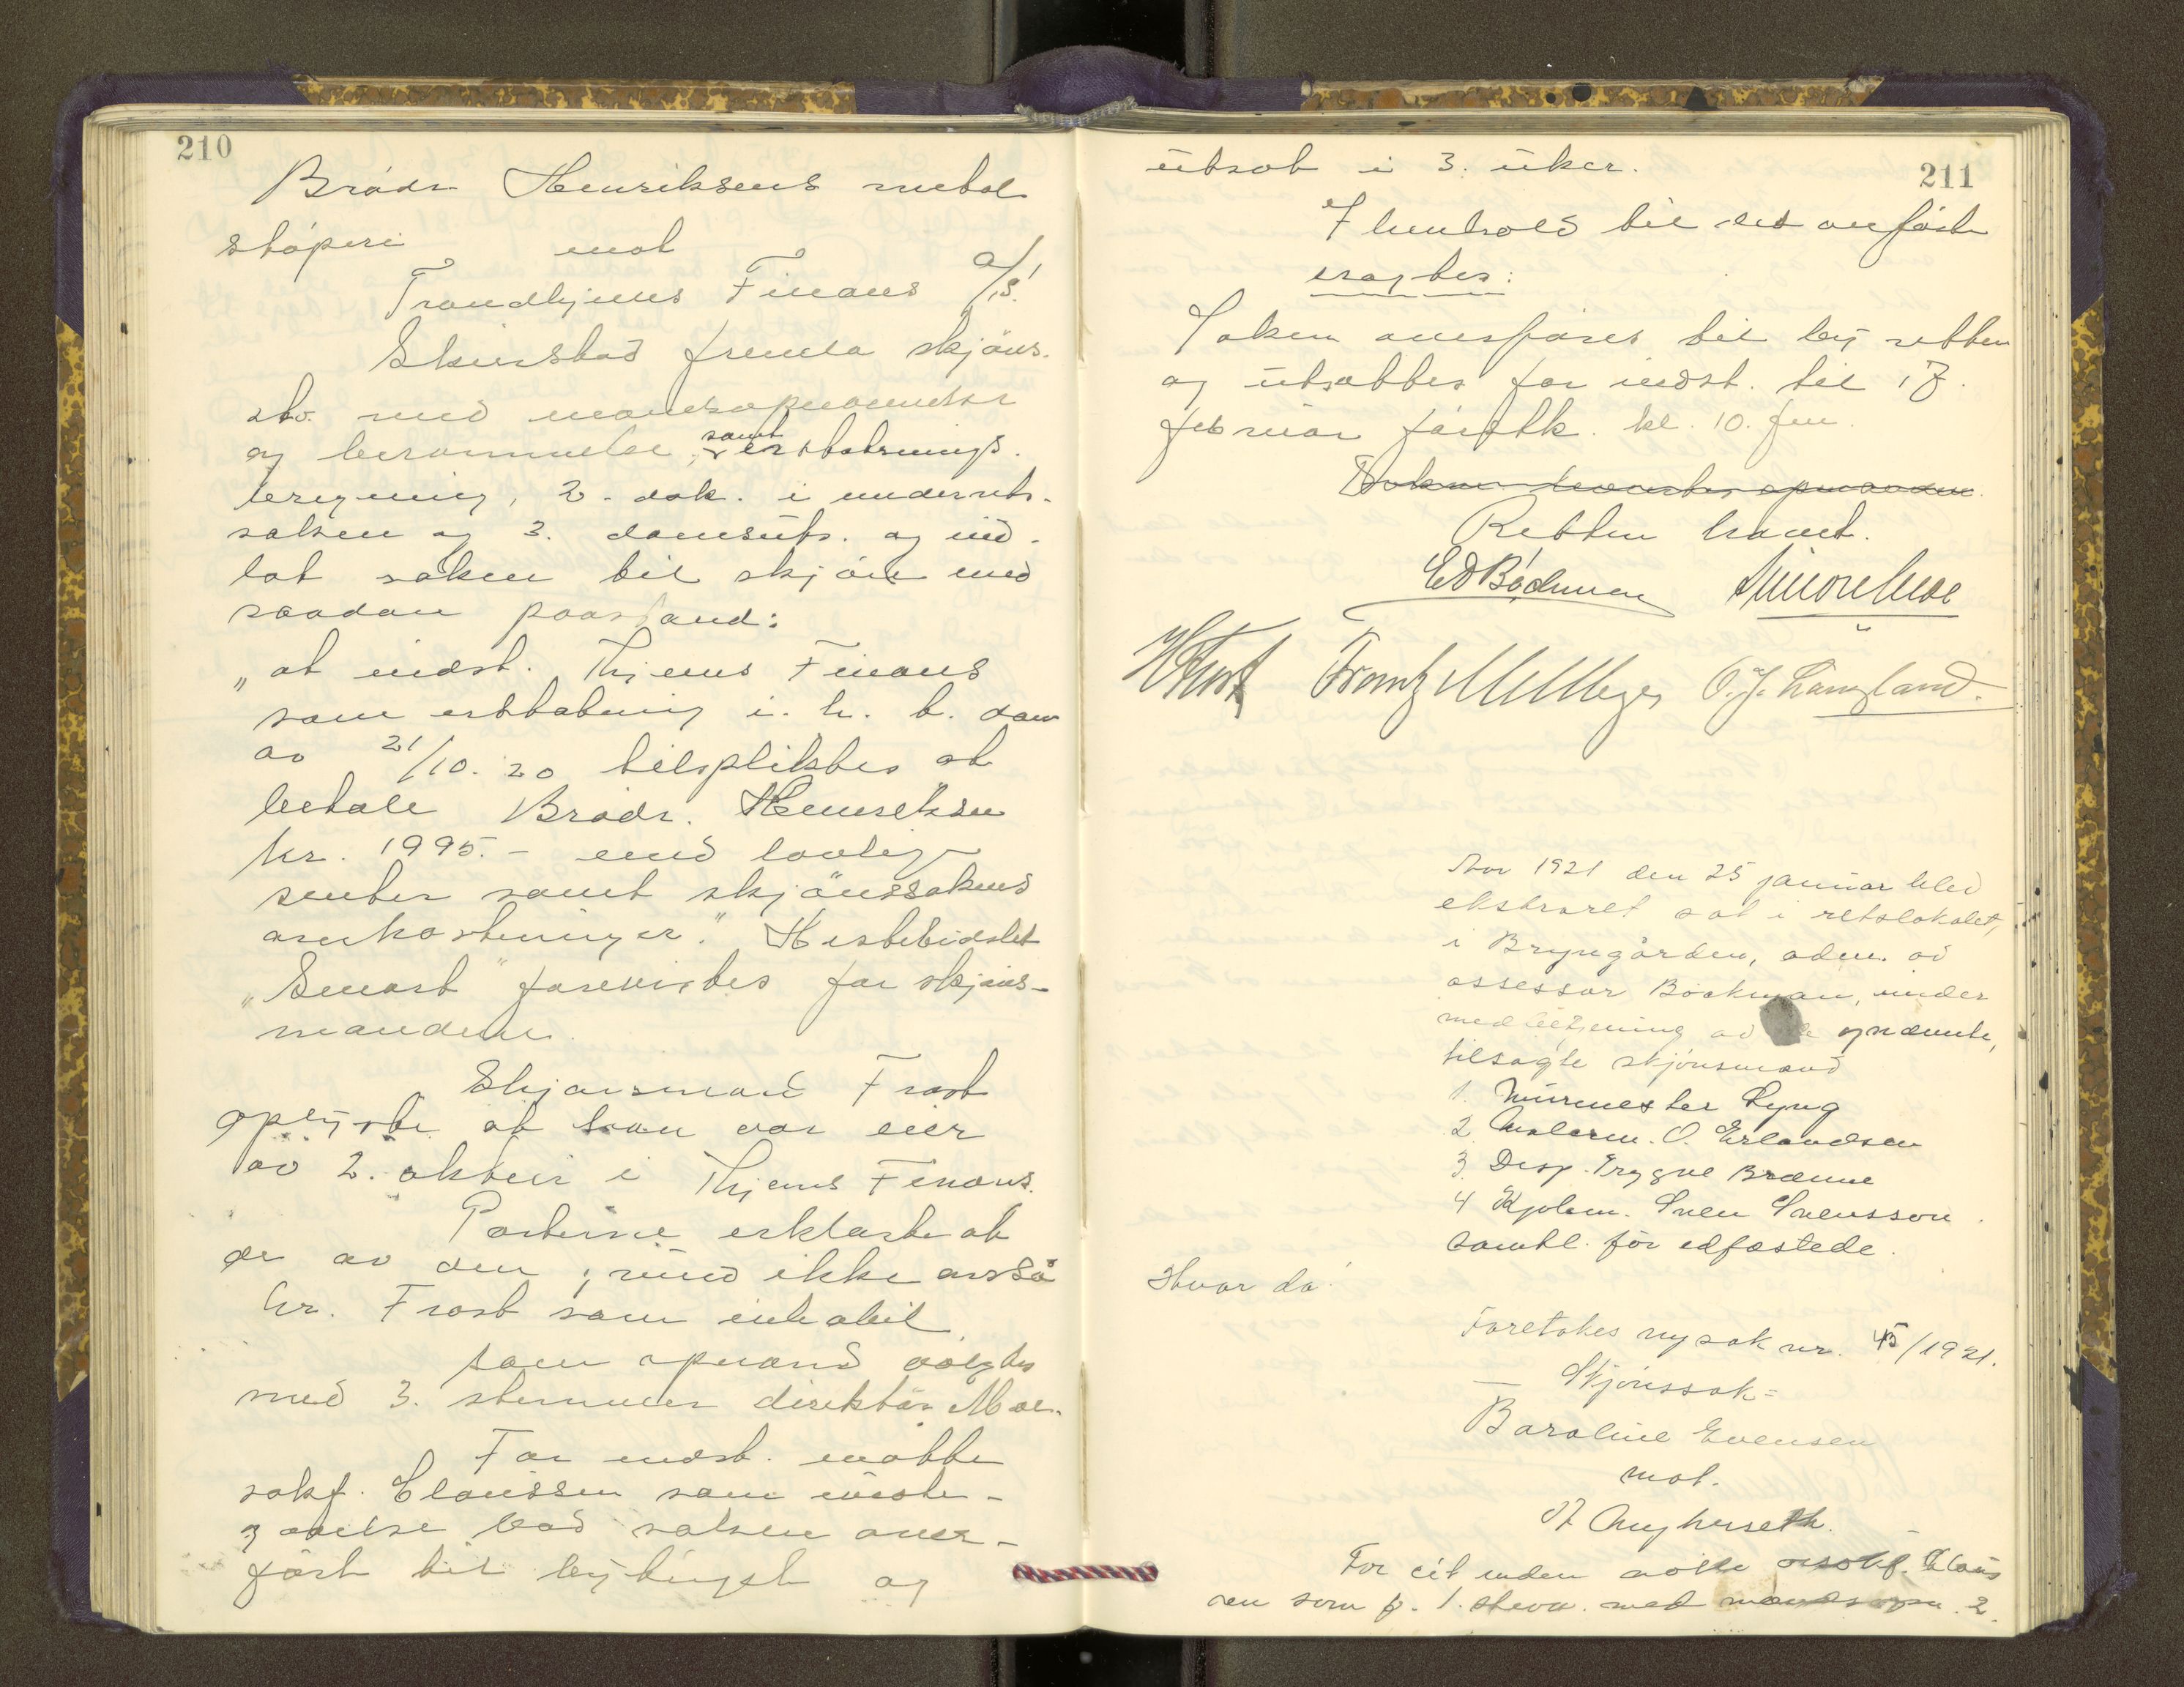 210
Brødr Henriksens metal
støperi mot
Trondhjems Finans A/S.
Skierstad fremla skjøns-
stv. med mandsopnævnelse
og berammelse, samt erstatnings-
bregning, 2. dok. i underrets-
saken og 3. domsuts. og ind-
lot saken til skjøn med
saadan paastand:
"at indst. Thjems Finans
som erstatning i. h. t. dom
av 21/10. 20 tilpliktes at
betale Brødr. Henriksen
kr. 1995.- med lovlige
renter samt skjønssakens
omkostninger." Hestebidslet
"Smart" forevistes for skjøns-
mændene.
Skjønsmand Frost
oplyste at han var eier
av 2. aktier i Thjems Finans.
Parterne erklærte at
de av den grund ikke anså
hr. Frost som inhabil.
Som opmand valgtes
med 3. stemmer direktør Moe.
For indst. møtte
sakf. Claussen som
bad saken over-
ført til bytinget og
211
utsat i 3. uker.
I henhold til det anførte
eragtes:
Saken overføres til byretten
og utsættes for indst. til 17.
februar førstk. kl. 10. fm.
Retten hævet.
Ed Bødtman Simon Moe
H Frost Frantz M Meyer O. J. Langland.
Aar 1921 den 25 januar blev
ekstraret sat i retslokalet,
i Bryngården, adm. av
assessor Bøckman, under
medbetjening av de opnævnte,
tilsagte skjønsmænd
1. Murmester Lyng
2. Malerm. O. Erlandsen
3. Disp. Trygve Brænne
4 Kjølem. Sven Svensson.
samtl. før edfæstede.
Hvor da!
Foretokes ny sak nr. 45/1921.
Skjønssak =
Baroline Evensen
mot.
For cit inden møtte orsakf. Claus
sen som p. 1. stevn. med mandsopn. 2.